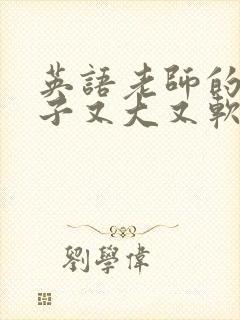 英語老師的
子又大又軟
劉學偉